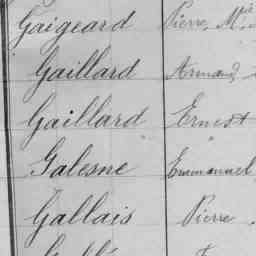 Gaigeard Pierre, M.
Gaillard Armand
Gaillard Ernest
Galesne Emmanuel
Gallais Pierre